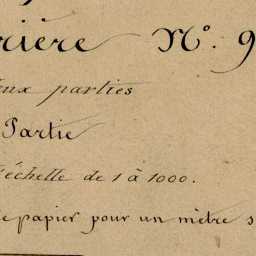 rière N.º 9
eux parties
Partie
l'échelle de 1 à 1000.
e papier pour un mètre s